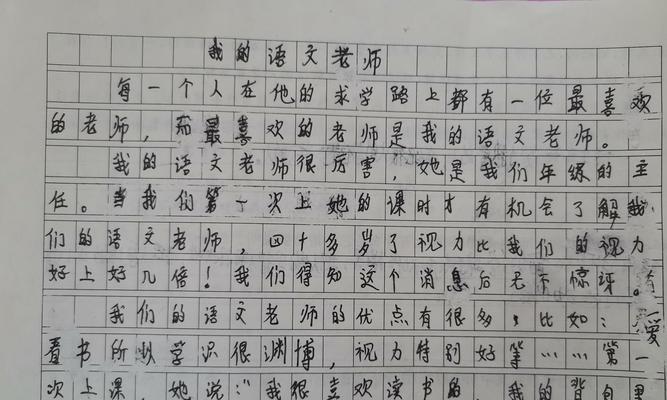 我的语文老师
每一个人在他的求学路上都有一位最喜欢
的老师，而最喜欢的老师是我的语文老师。
我的语文老师很厉害，她是我们年级的主
任。当我们第一次上她的课时才有机会了解我
们的语文老师，四十多岁了视力比我们的视力
好上好几倍！我们得知这个消息后无不惊讶。
我们的语文老师的优点有很多，比如：爱
看书所以学识很渊博，视力特别好等……第一
次上课，她说："我很喜欢读书的，我的背包里